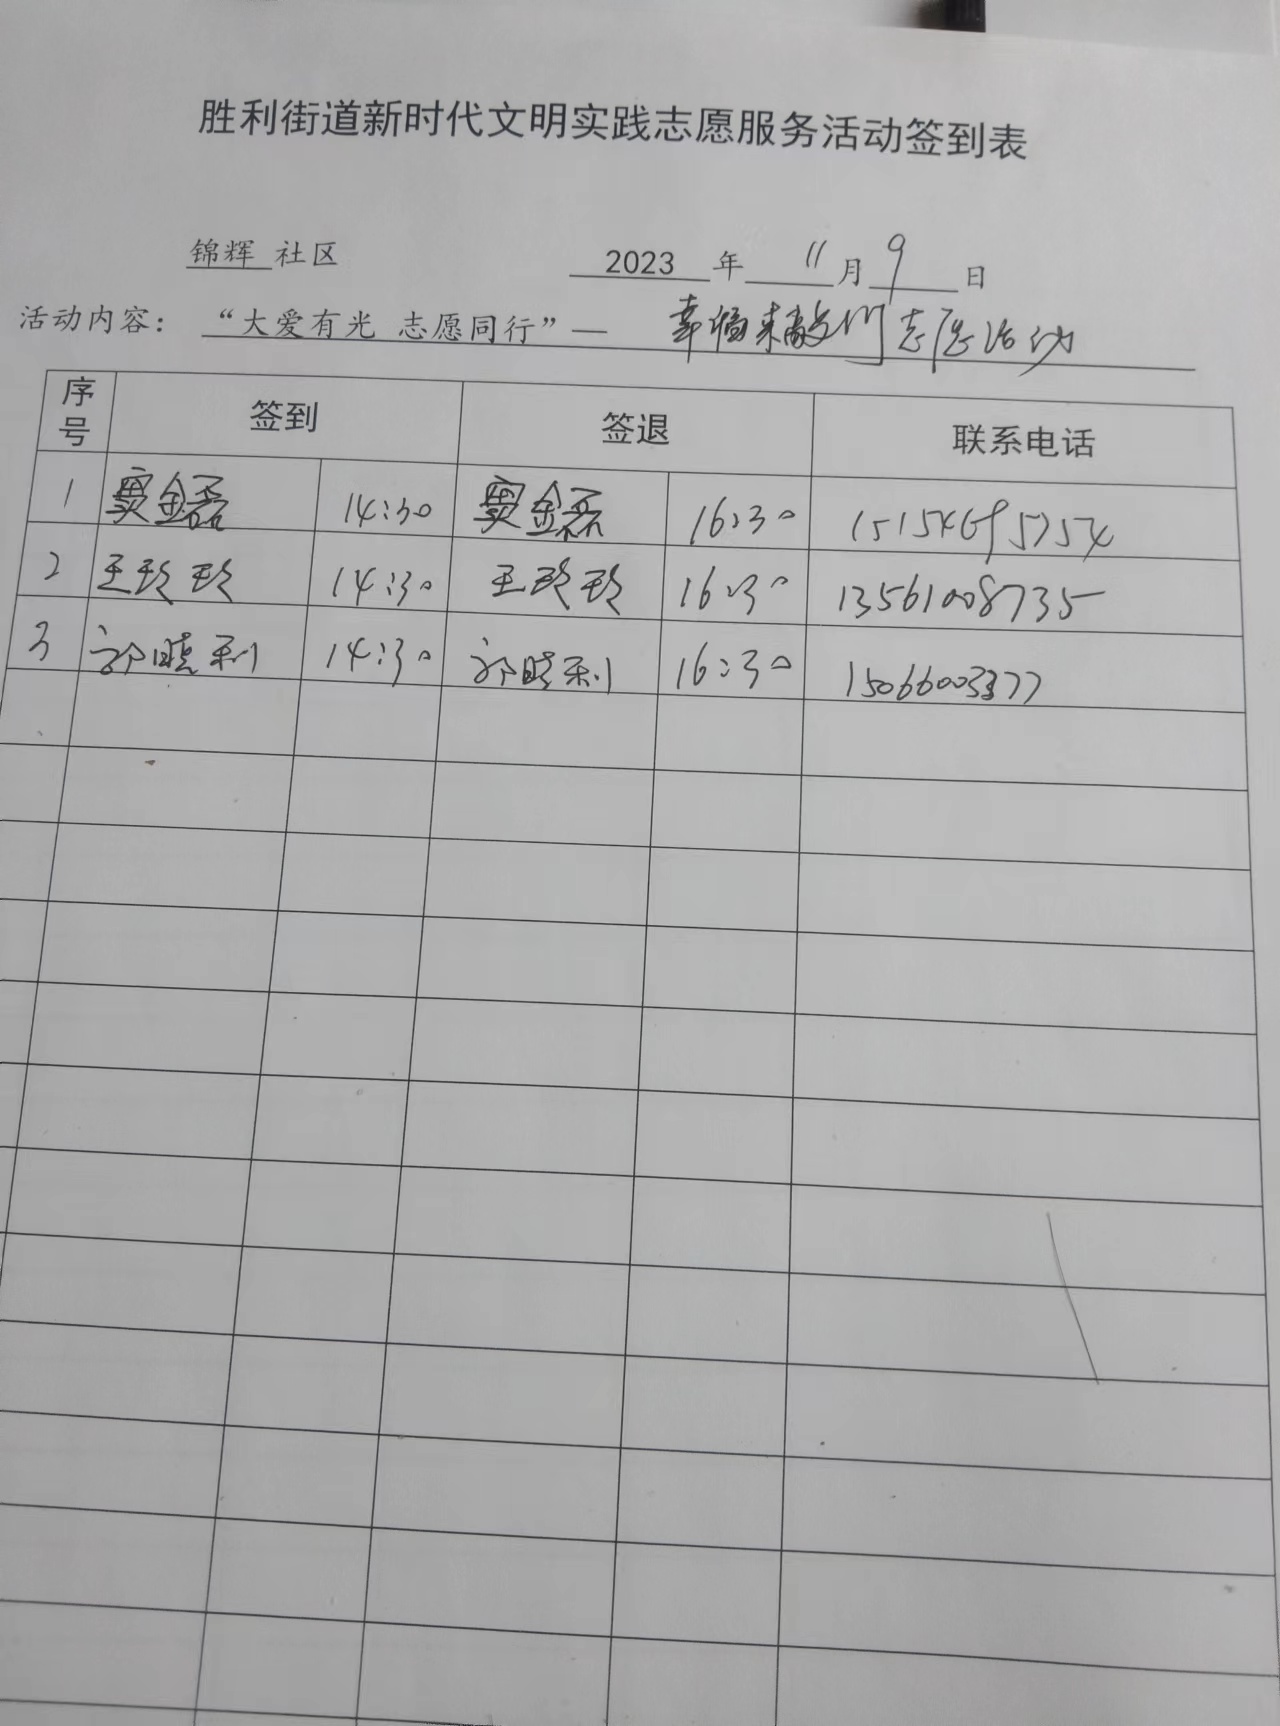 胜利街道新时代文明实践志愿服务活动签到表
锦辉 社区 2023 年 11 月 9 日
活动内容： “大爱有光 志愿同行”— 幸福来敲门志愿活动
序号 签到 签退 联系电话
1 窦金磊 14:30 窦金磊 16:30
2 王玲玲 14:30 王玲玲 16:30 13561008735
3 郭晓利 14:30 郭晓利 16:30 15066003377